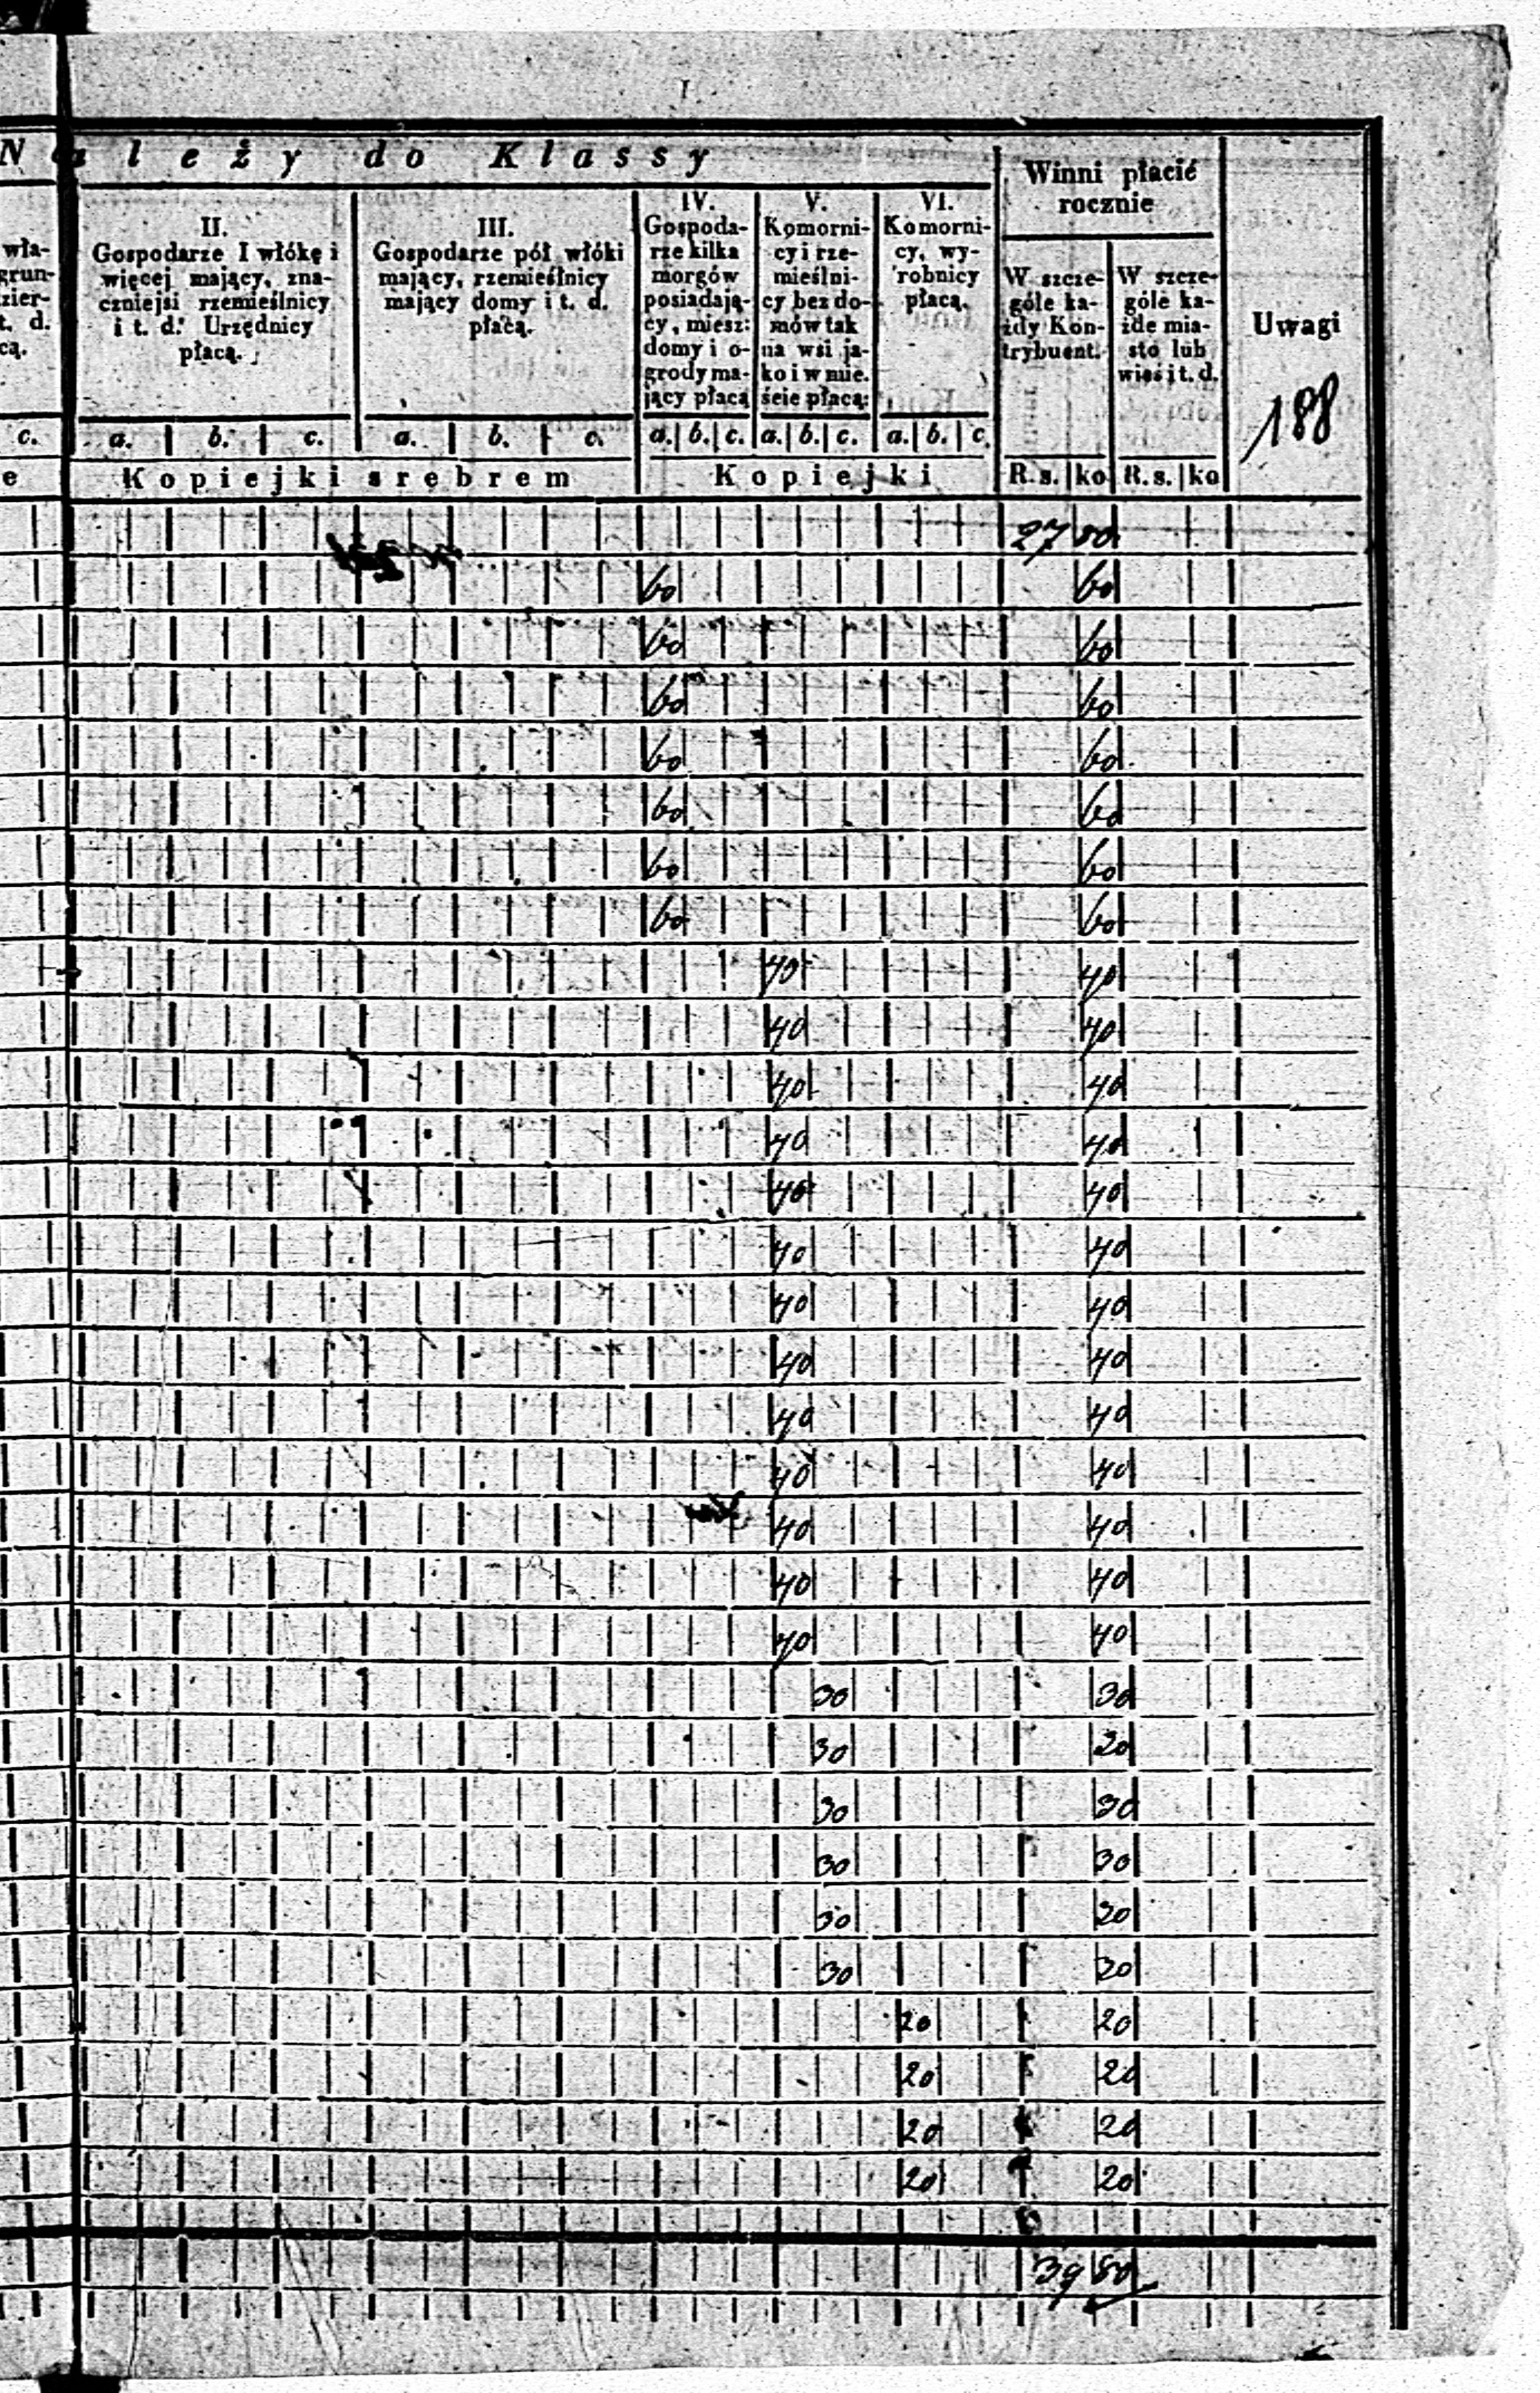 I.
N a l e ż y d o K l a s s y
Winni płacić
rocznie
Uwagi
188
wła-
grun-
zier-
t. d.
cą.
II.
Gospodarze I włókę i
więcej mający, zna-
czniejsi rzemieślnicy
i t. d. Urzędnicy
płacą.
III.
Gospodarze pół włóki
mający, rzemieślnicy
mający domy i t. d.
płacą.
IV.
Gospoda-
rze kilka
morgów
posiadają-
cy, miesz:
domy i o-
grody ma-
jący płacą
V.
Komorni-
cy i rze-
mieślni-
cy bez do-
mów tak
na wsi ja-
ko i w mie.
ście płacą:
VI.
Komorni-
cy, wy-
robnicy
płacą.
W szcze-
góle ka-
żdy Kon-
trybuent.
W szcze-
góle ka-
żde mia-
sto lub
wieś i t. d.
c. a. b. c. a. b. c. a. b. c. a. b. c. a. b. c.
e K o p i e j k i s r e b r e m K o p i e j k i R. s. ko R. s. ko
27 80
60 60
60 60
60 60
60 60
60 60
60 60
60 60
40 40
40 40
40 40
40 40
40 40
40 40
40 40
40 40
40 40
40 40
40 40
40 40
40 40
30 30
30 30
30 30
30 30
30 30
30 30
20 20
20 20
20 20
20 20
39 80